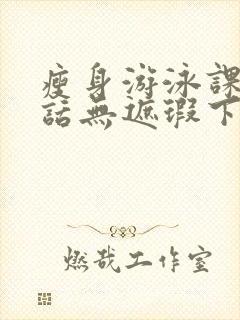 瘦身游泳課
話無遮瑕下
燃哉工作室